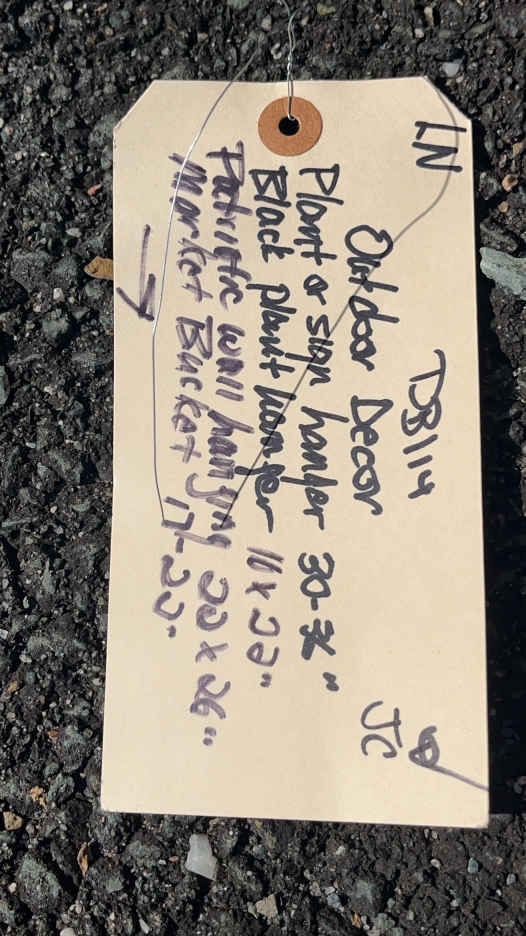 LN
DB114
Outdoor Decor
JC
Plant or sign hanger 30-36"
Black plant hanger 16x22"
Patriotic wall hanging 22x26"
Market Bucket 17-20"